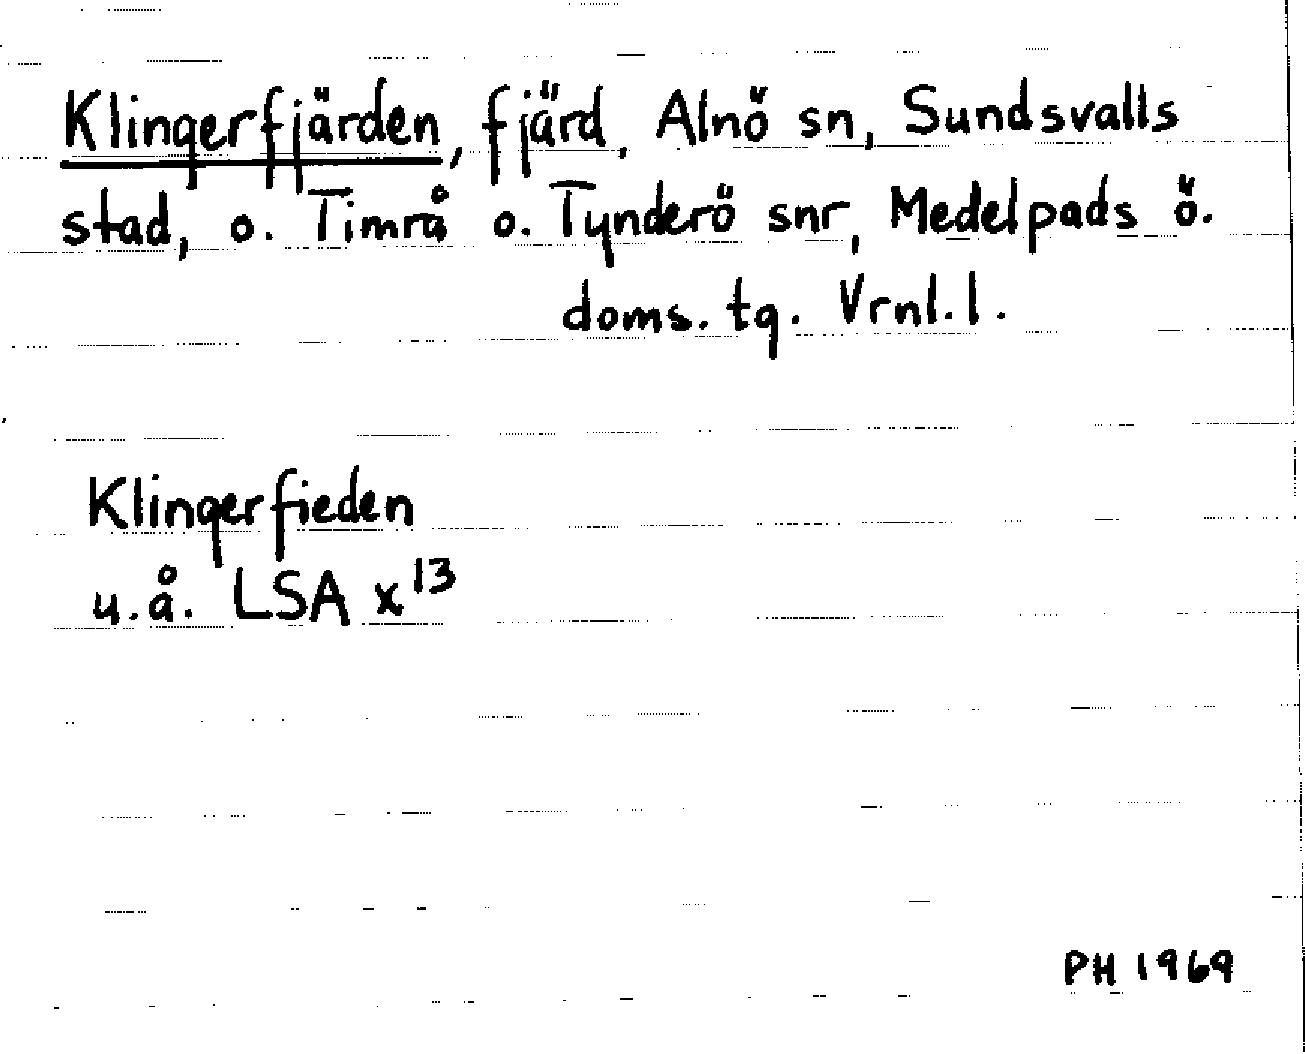 Klingerfjärden, fjärd, Alnö sn, Sundsvalls
stad, o. Timrå o. Tynderö snr, Medelpads ö.
doms. tg. Vrnl. l.
Klingerfieden
u.å. LSA x¹³
PH 1969